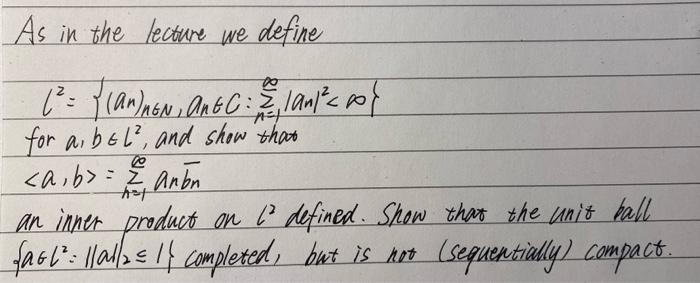 As in the lecture we define
l² = {(an)n∈N, an∈C : ∞Σn=1 |an|² < ∞}
for a, b ∈ l², and show that
<a, b> = ∞Σn=1 an b̅n
an inner product on l² defined. Show that the unit ball
{a∈l² : ||a||₂ ≤ 1} completed, but is not (sequentially) compact.